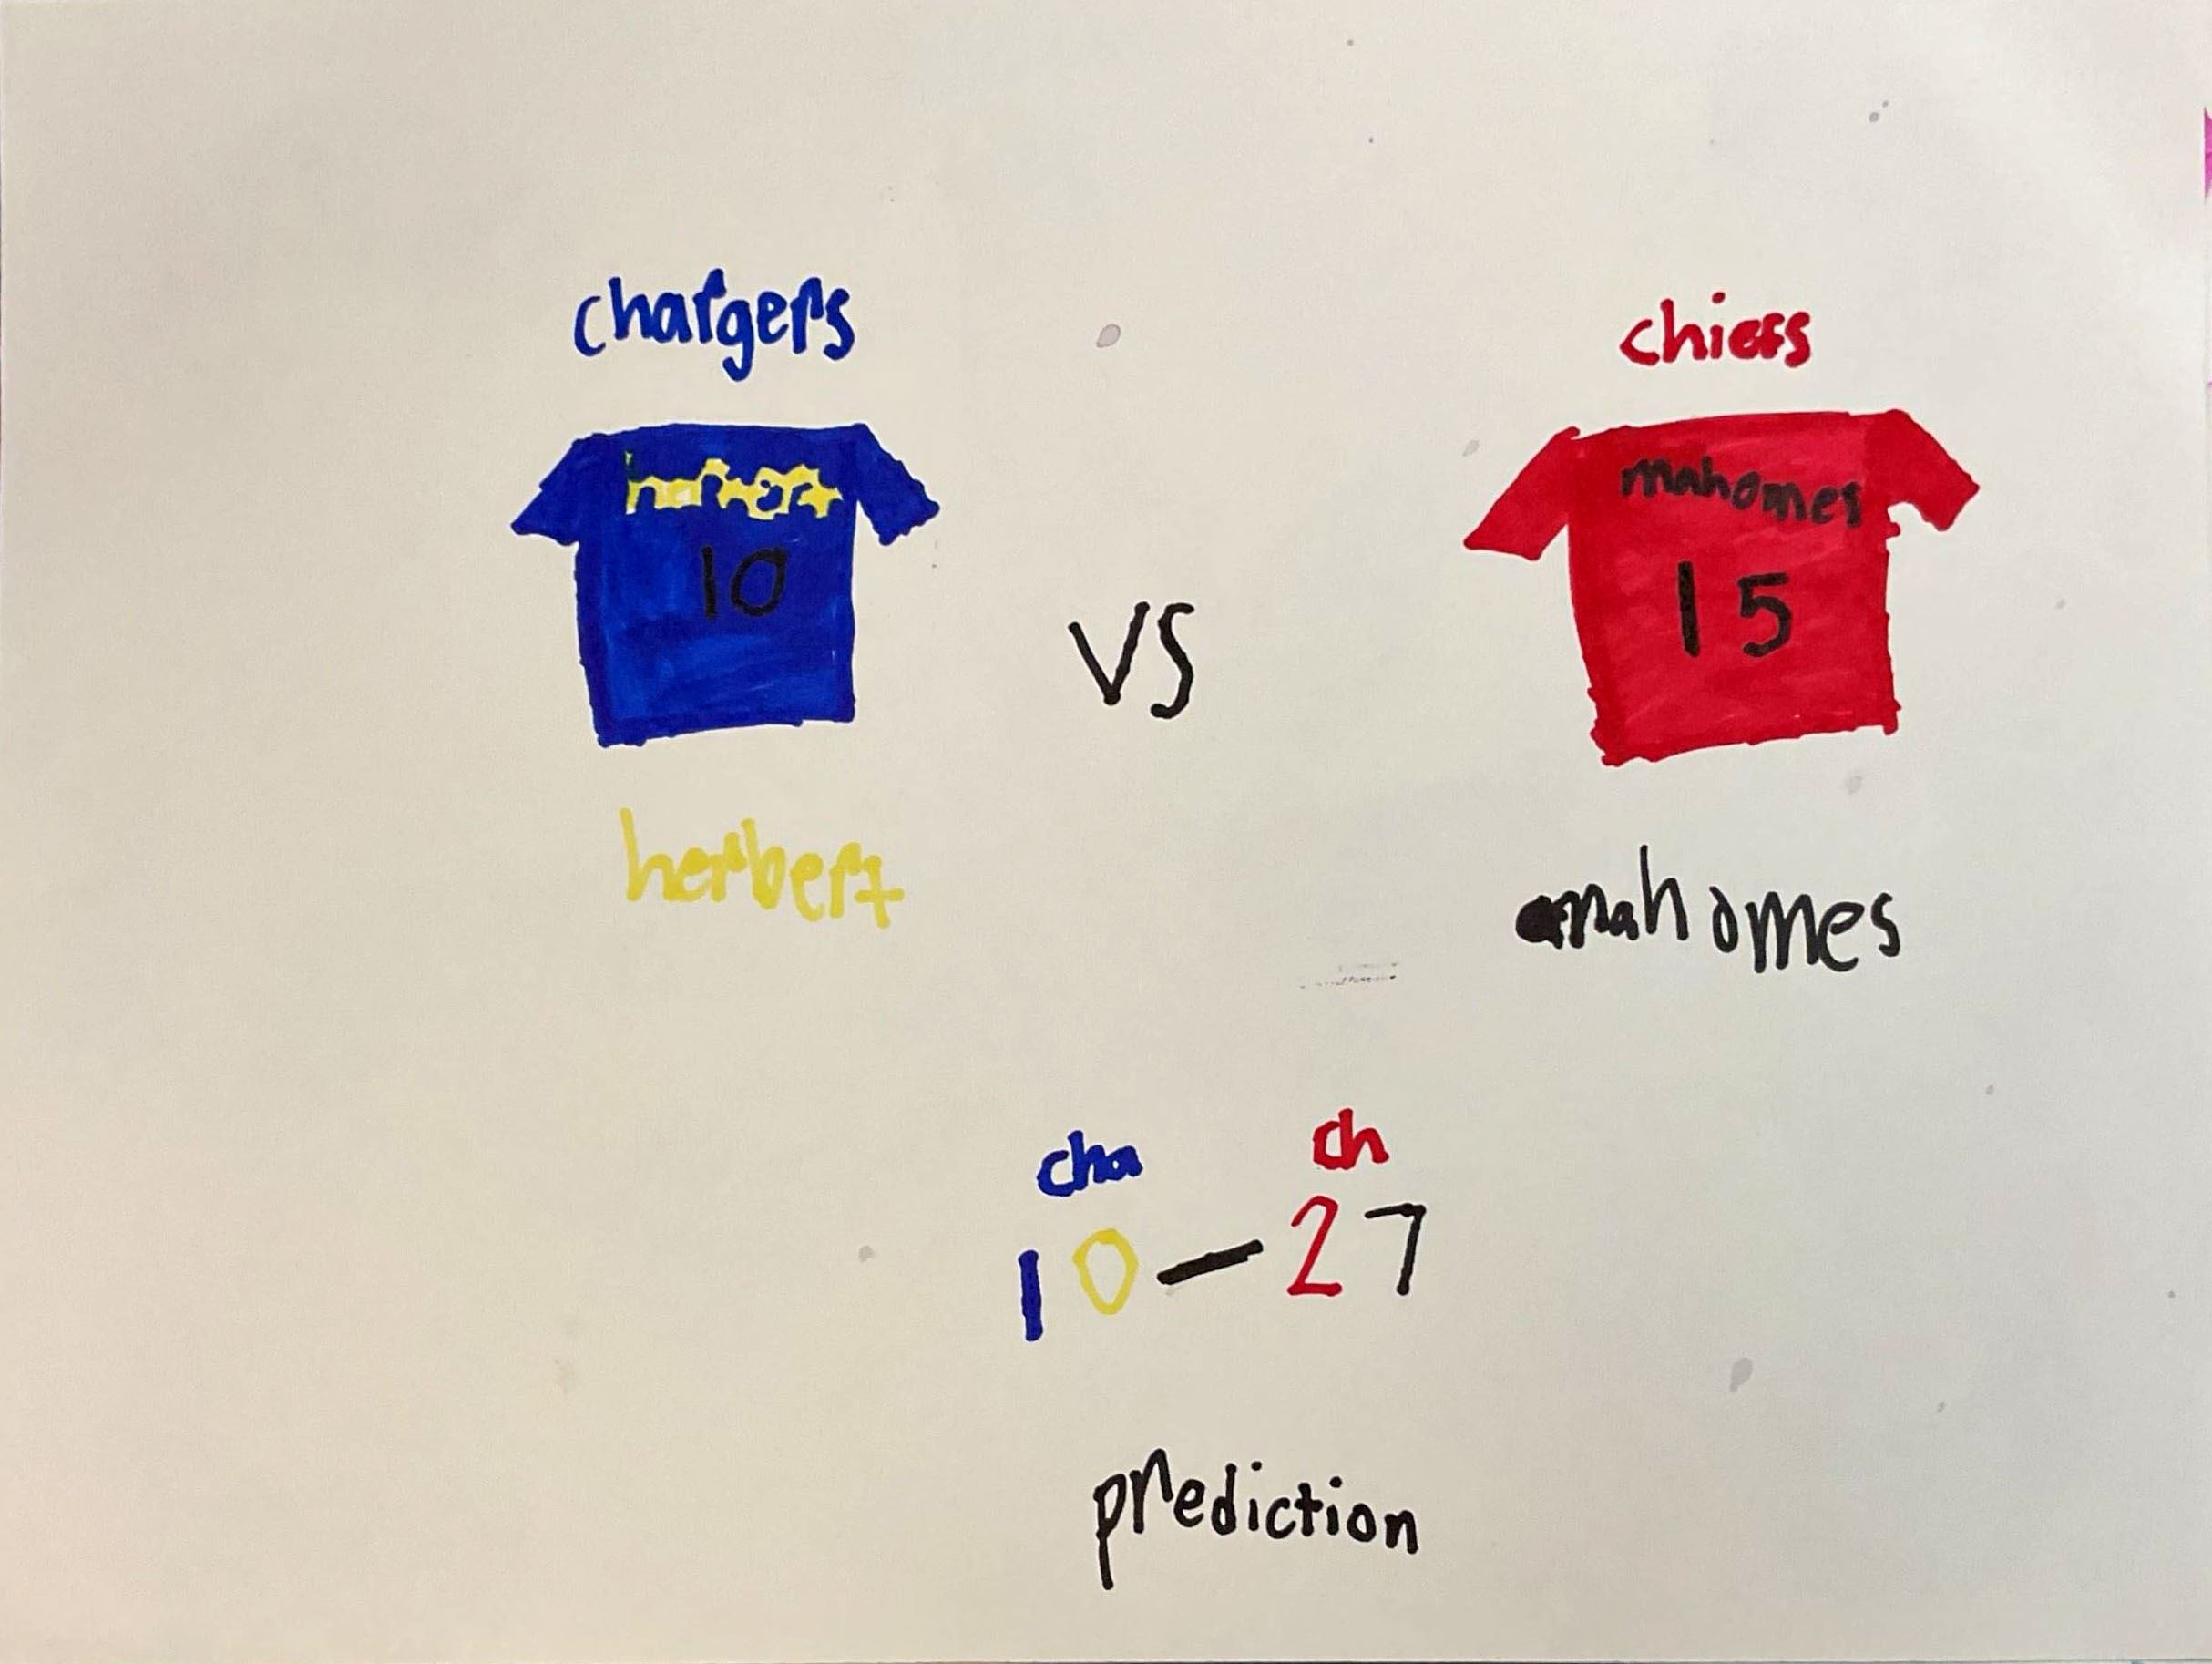 chargers
chiefs
herbert
10
mahomes
15
vs
herbert
mahomes
cha
ch
10 — 27
prediction